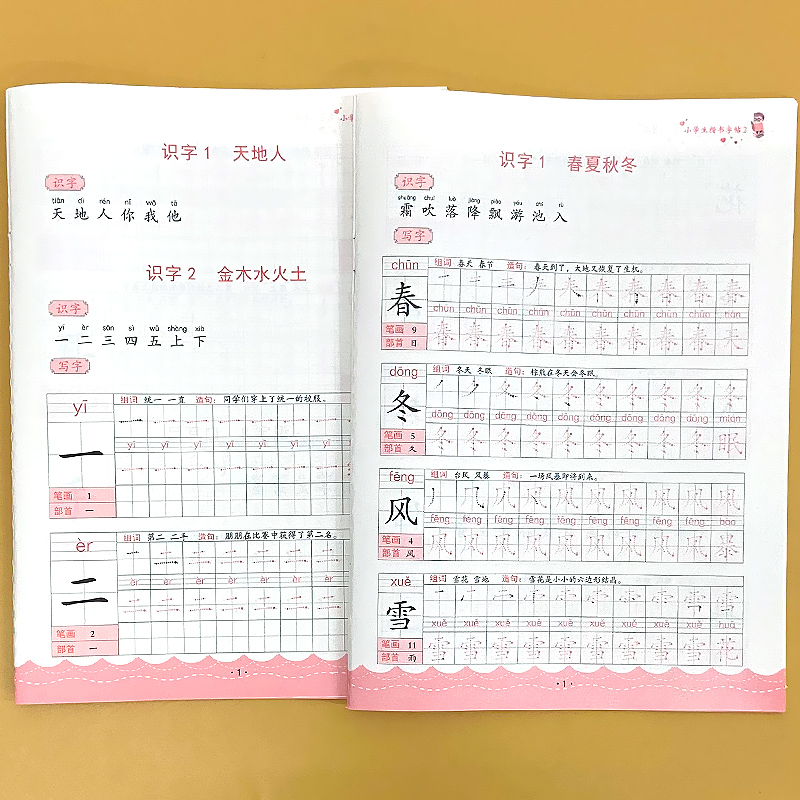 识字1 天地人
识字
tiān dì rén nǐ wǒ tā
天 地 人 你 我 他
识字2 金木水火土
识字
yī èr sān sì wǔ shàng xià
一 二 三 四 五 上 下
写字
yī
组词 统一 一直 造句：同学们穿上了统一的校服。
一
yī yī yī yī yī yī yī
笔画 1
部首 一
èr
组词 第二 二手 造句：朋朋在比赛中获得了第二名。
二
èr èr èr èr èr èr èr
笔画 2
部首 一
·1·
小学生楷书字帖2
识字1 春夏秋冬
识字
shuāng chuī luò jiàng piāo yóu chí rù
霜 吹 落 降 飘 游 池 入
写字
chūn
组词 春天 春节 造句：春天到了，大地又恢复了生机。
春
chūn chūn chūn chūn chūn chūn chūn chūn chūn
笔画 9
部首 日
春 春 春 春 春 春 春 春 天
dōng
组词 冬天 冬眠 造句：棕熊在冬天会冬眠。
冬
dōng dōng dōng dōng dōng dōng dōng dōng mián
笔画 5
部首 夂
冬 冬 冬 冬 冬 冬 冬 冬 眠
fēng
组词 台风 风暴 造句：一场风暴即将到来。
风
fēng fēng fēng fēng fēng fēng fēng fēng bào
笔画 4
部首 风
风 风 风 风 风 风 风 风 暴
xuě
组词 雪花 雪地 造句：雪花是小小的六边形结晶。
雪
xuě xuě xuě xuě xuě xuě xuě xuě huā
笔画 11
部首 雨
雪 雪 雪 雪 雪 雪 雪 雪 花
·1·